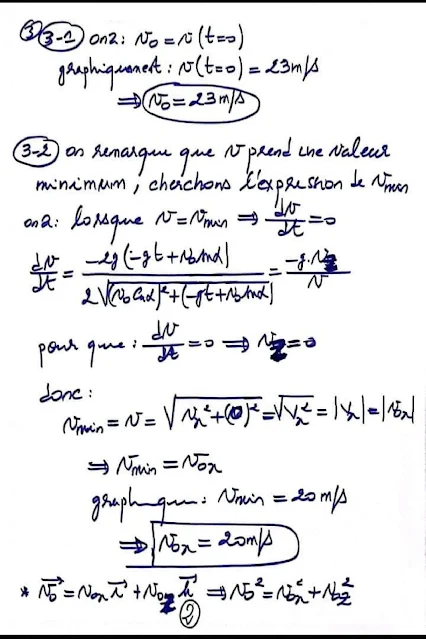 ③ 3-1 on a : v₀ = v(t=0)
graphiquement : v(t=0) = 23m/s
⟹ v₀ = 23m/s
3-2 on remarque que v prend une valeur
minimum, cherchons l'expression de v_min
on a : lorsque v = v_min ⟹ dv/dt = 0
dv/dt = -2g(-gt + v₀ sinα) / 2√((v₀ cosα)² + (-gt + v₀ sinα)) = -g.v_z / v
pour que : dv/dt = 0 ⟹ v_z = 0
donc :
v_min = v = √(v_x² + (0)²) = √v_x² = |v_x| = |v₀x|
⟹ v_min = v₀x
graphique : v_min = 20m/s
⟹ v₀x = 20m/s
* v₀⃗ = v₀x i⃗ + v₀z k⃗ ⟹ v₀² = v₀x² + v₀z²
②